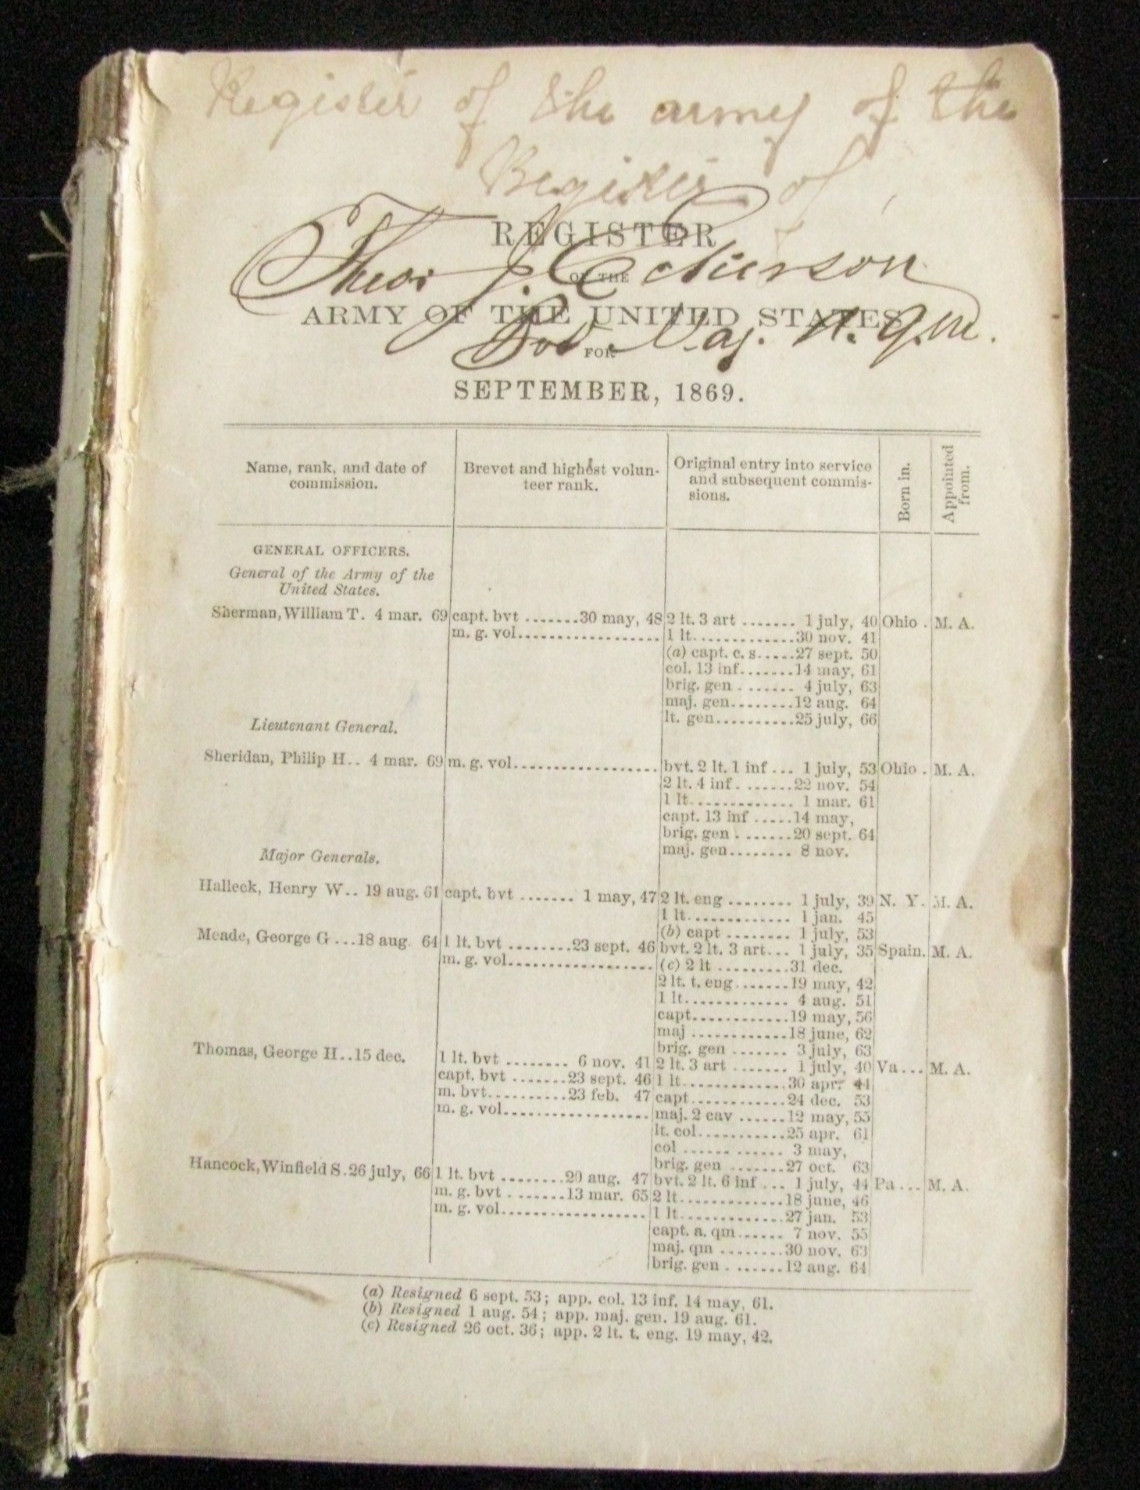 Register of the army of the
Register of
REGISTER
Theo. J. Eckerson
OF THE
ARMY OF THE UNITED STATES
Bvt. Maj. A. Q. M.
FOR
SEPTEMBER, 1869.
Name, rank, and date of commission. Brevet and highest volunteer rank. Original entry into service and subsequent commissions. Born in. Appointed from.
GENERAL OFFICERS.
General of the Army of the
United States.
Sherman, William T. 4 mar. 69 capt. bvt ....... 30 may, 48 2 lt. 3 art ....... 1 july, 40 Ohio . M. A.
m. g. vol................. 1 lt.............30 nov. 41
(a) capt. c. s.....27 sept. 50
col. 13 inf.......14 may, 61
brig. gen ....... 4 july, 63
maj. gen........12 aug. 64
lt. gen..........25 july, 66
Lieutenant General.
Sheridan, Philip H.. 4 mar. 69 m. g. vol................. bvt. 2 lt. 1 inf ... 1 july, 53 Ohio . M. A.
2 lt. 4 inf. .......22 nov. 54
1 lt............. 1 mar. 61
capt. 13 inf .....14 may,
brig. gen . .......20 sept. 64
maj. gen........ 8 nov.
Major Generals.
Halleck, Henry W.. 19 aug. 61 capt. bvt ....... 1 may, 47 2 lt. eng ........ 1 july, 39 N. Y. M. A.
1 lt............. 1 jan. 45
(b) capt ........ 1 july, 53
Meade, George G ...18 aug. 64 1 lt. bvt ........23 sept. 46 bvt. 2 lt. 3 art... 1 july, 35 Spain. M. A.
m. g. vol................. (c) 2 lt .........31 dec.
2 lt. t. eng.......19 may, 42
1 lt............. 4 aug. 51
capt............19 may, 56
maj ............18 june, 62
brig. gen ....... 3 july, 63
Thomas, George H..15 dec. 1 lt. bvt ........ 6 nov. 41 2 lt. 3 art ....... 1 july, 40 Va... M. A.
capt. bvt .......23 sept. 46 1 lt.............30 apr. 44
m. bvt..........23 feb. 47 capt............24 dec. 53
m. g. vol................. maj. 2 cav ......12 may, 55
lt. col...........25 apr. 61
col ...... ...... 3 may,
brig. gen .......27 oct. 63
Hancock, Winfield S. 26 july, 66 1 lt. bvt ........20 aug. 47 bvt. 2 lt. 6 inf ... 1 july, 44 Pa ... M. A.
m. g. bvt . .......13 mar. 65 2 lt.............18 june, 46
m. g. vol................. 1 lt.............27 jan. 53
capt. a. qm...... 7 nov. 55
maj. qm ........30 nov. 63
brig. gen . .......12 aug. 64
(a) Resigned 6 sept. 53; app. col. 13 inf. 14 may, 61.
(b) Resigned 1 aug. 54; app. maj. gen. 19 aug. 61.
(c) Resigned 26 oct. 36; app. 2 lt. t. eng. 19 may, 42.